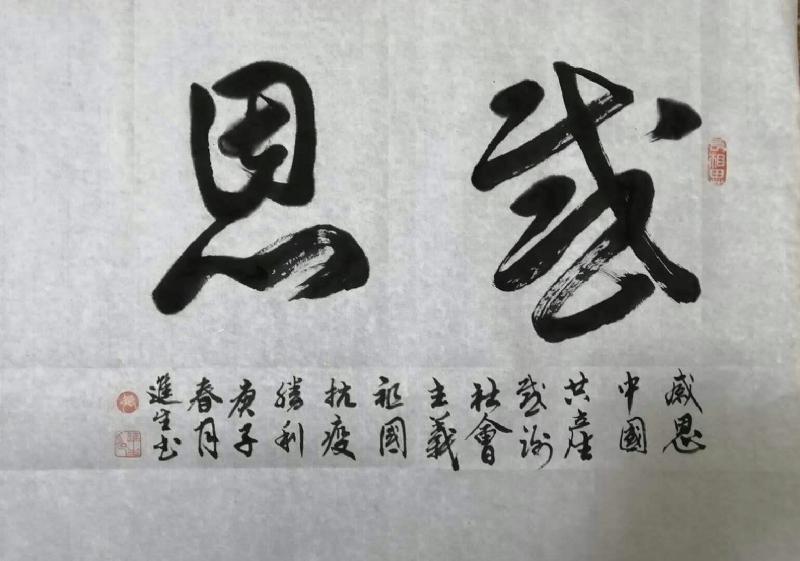 感恩
感恩
中國
共產
感謝
社會
主義
祖國
抗疫
勝利
庚子
春月
進生书